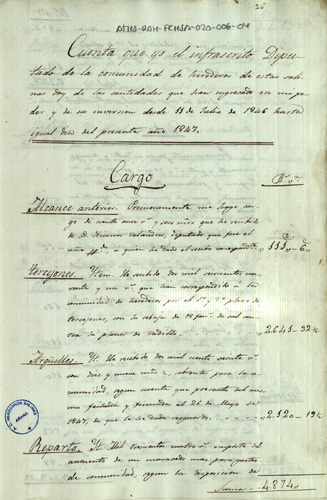 26
ATHA-DAH-FCHSA-020-006-04
Cuenta que yo el infrascrito Dipu-
tado de la comunidad de herederos de estas sali-
nas doy de las cantidades que han ingresado en mi po-
der y de su inversion desde 11 de Julio de 1846 hasta
igual dia del presente año 1847.
Cargo
Rs. vn.
Alcance anterior. Primeramente me hago car-
go de ciento once rs. y seis mrs. que he recibido
de D. diputado que fue el
año pp.do a quien he dado el recibo correspondte.
111,, 6
Torrejones. It. he recibido dos mil seiscientos cua-
renta y un rs. que han correspondido á la
comunidad de herederos por el 1º y 2º plazo de
torrejones, con la rebaja de 18 fans. de sal
2641-32
Argüelles. It. he recibido dos mil ciento veinte rs.
con diez y nueve mrs. para la co-
munidad, segun cuenta que presentó del mis-
mo fechada y firmada el 26 de Mayo de
1847, de que le he dado resguardo.
2.120-19
Reparto. It. Mil trescientos rs. importe del
aumento de un maravedís mas para gastos
de comunidad, segun la disposicion de
Suma 4.874